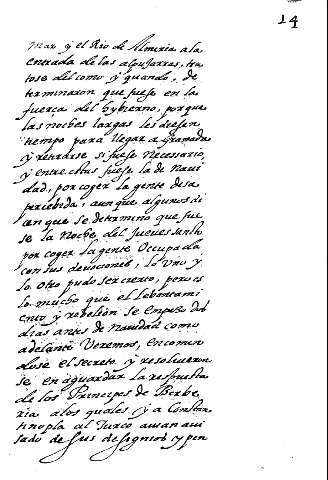 14
mar y el Rio de Almeria a la
entrada de las alpujarras, tra
tose del como y quando, de
terminaron que fuese en la
fuerça del hybierno, porque
las noches largas les diesen
tiempo para llegar a Granada
y retirarse si fuese necessario,
y entre ellas fuese la de Navi
dad, por coger la gente desa
percebida, aunque algunos di
cen que se determino que fue
se la Noche del jueves santo
por coger la gente Ocupada
con sus devociones, lo Uno y
lo otro pudo ser cierto, pero es
lo mucho que el lebantami
ento y rebelion se empeço dos
dias antes de navidad como
adelante Veremos, Encomen
dose el secreto y resolvieron
se en aguardar la respuesta
de los Principes de Berbe
ria a los quales y a Constan
tinopla al Turco avian avi
sado de sus desognios y pen